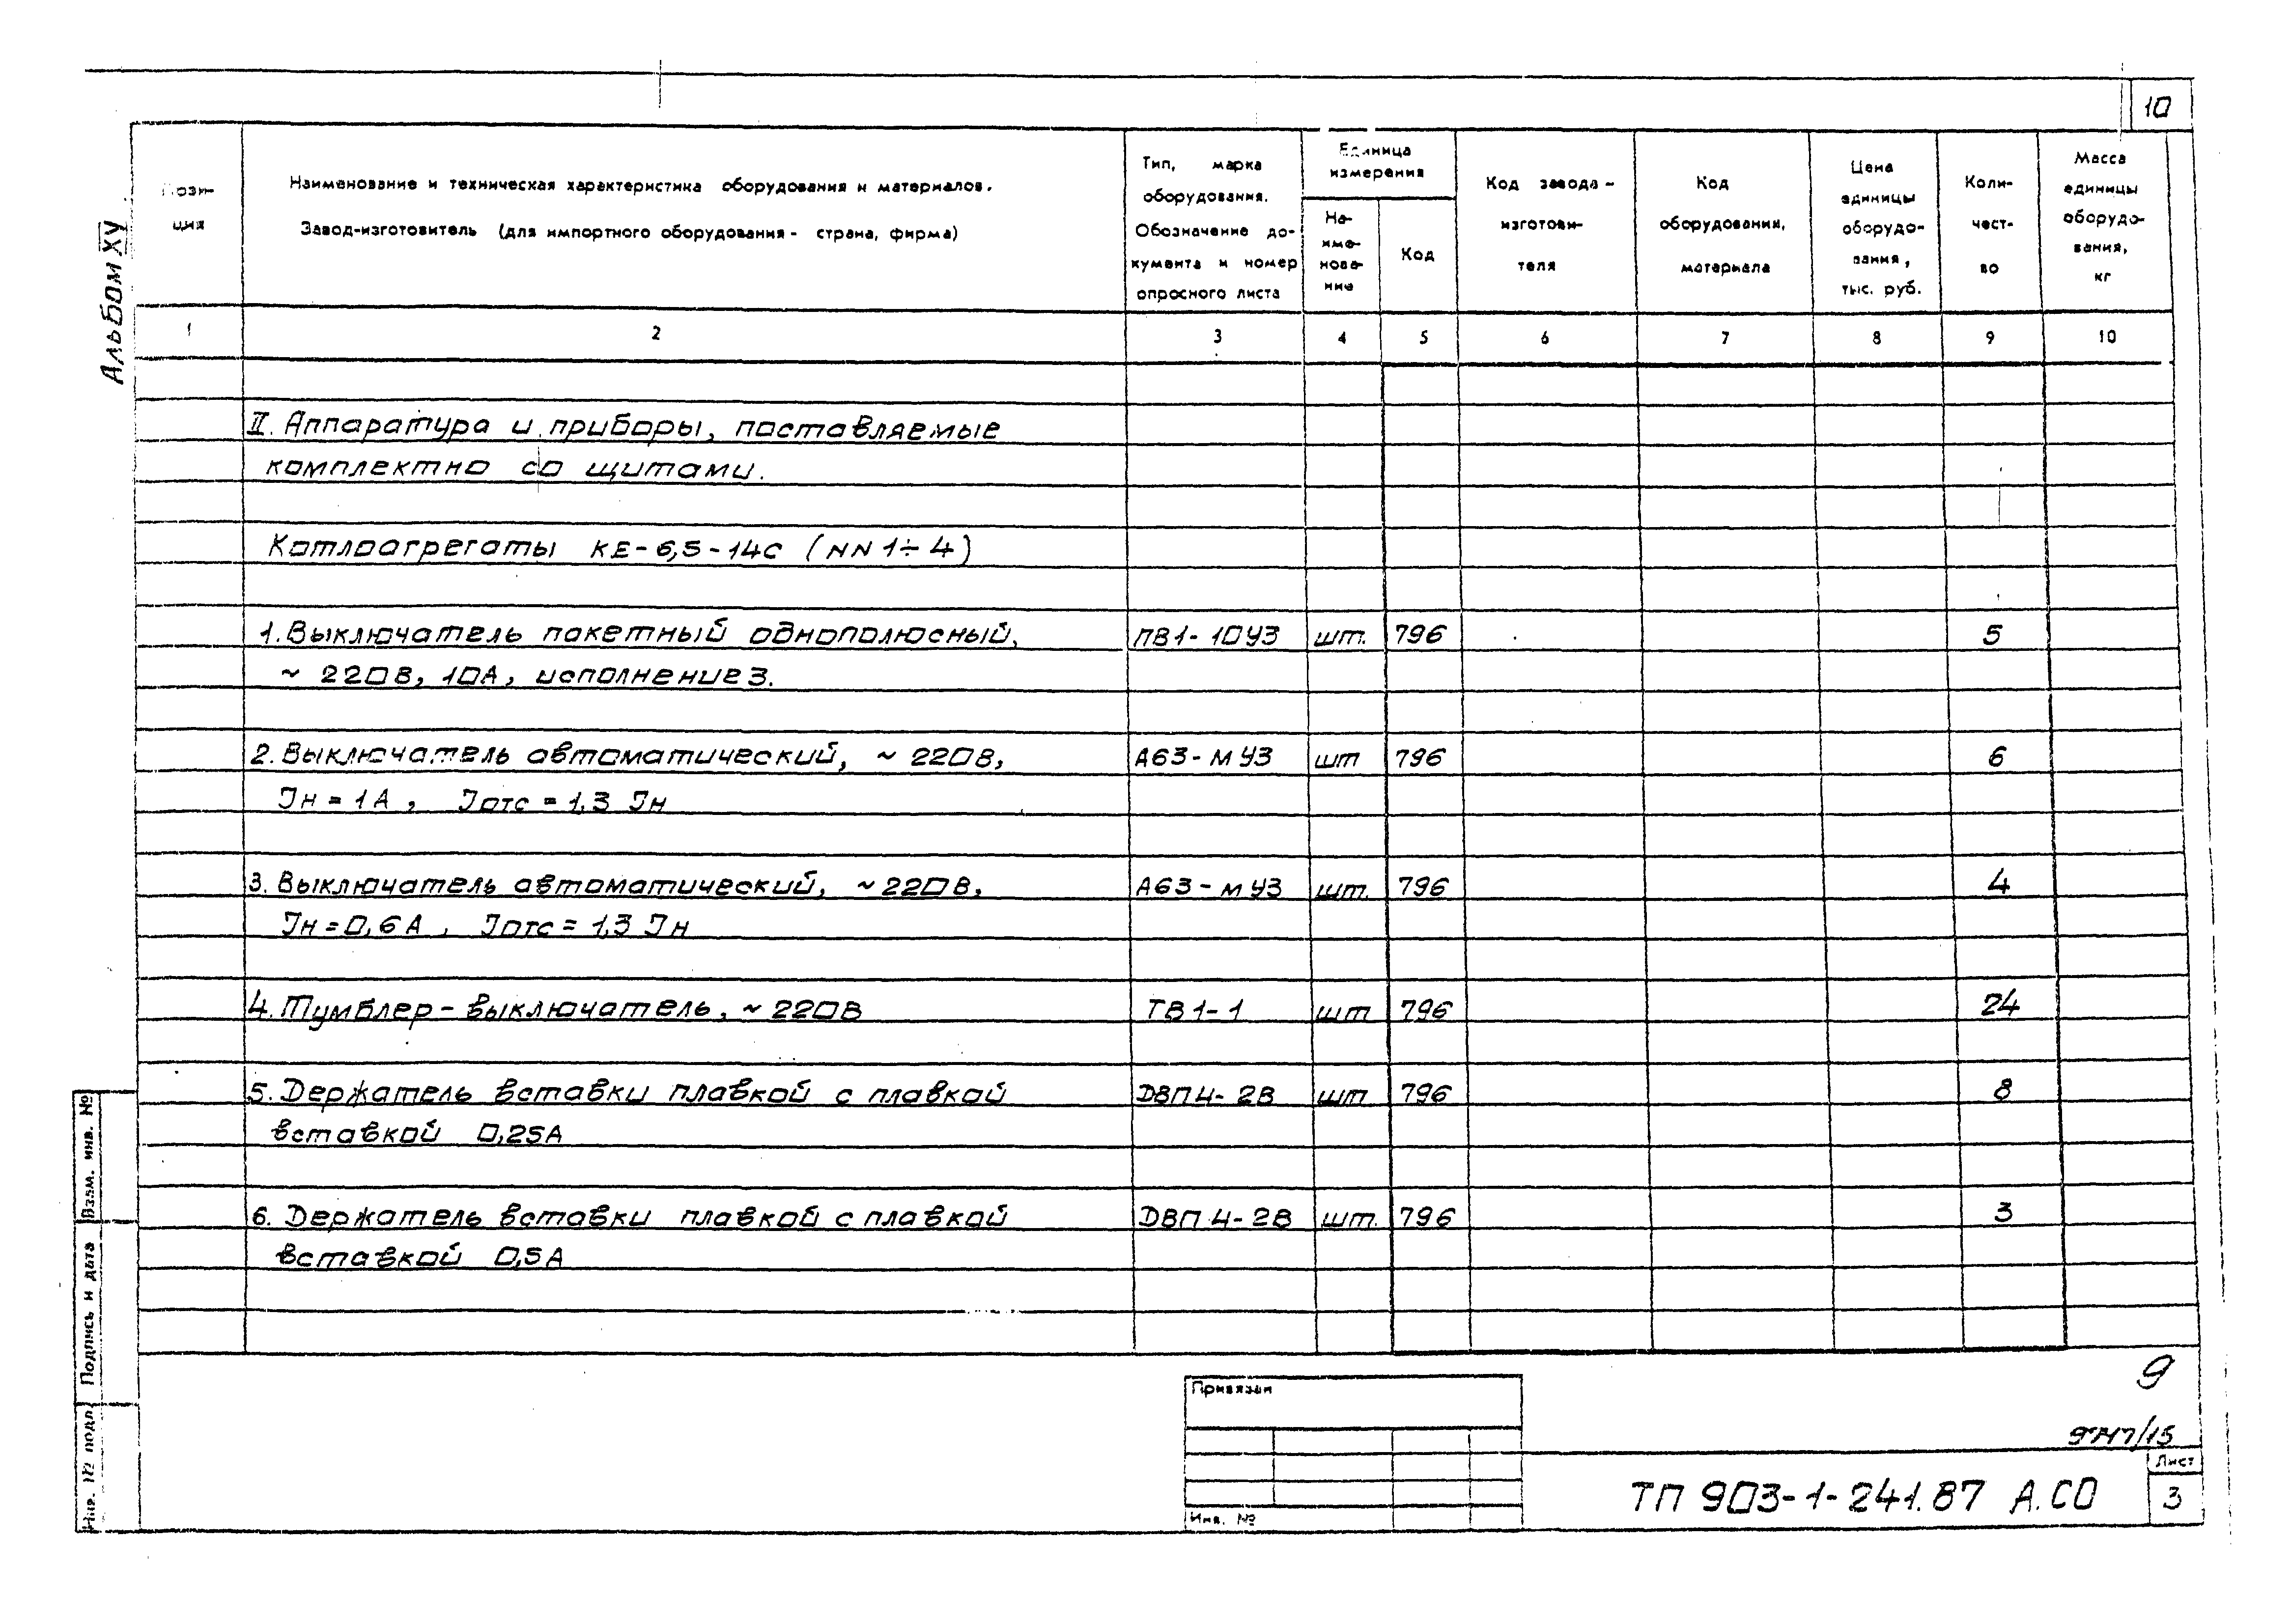 10
Альбом XV
Пози-
ция
Наименование и техническая характеристика оборудования и материалов.
Завод-изготовитель (для импортного оборудования - страна, фирма)
Тип, марка
оборудования.
Обозначение до-
кумента и номер
опросного листа
Единица
измерения
На-
име-
нова-
ние
Код
Код завода-
изготови-
теля
Код
оборудования,
материала
Цена
единицы
оборудо-
вания,
тыс. руб.
Коли-
чест-
во
Масса
единицы
оборудо-
вания,
кг
1 2 3 4 5 6 7 8 9 10
II. Аппаратура и приборы, поставляемые
комплектно со щитами.
Котлоагрегаты КЕ-6,5-14С (NN 1÷4)
1. Выключатель пакетный однополюсный, ПВ1-10У3 шт. 796 5
~ 220В, 10А, исполнение 3.
2. Выключатель автоматический, ~ 220В, А63-МУ3 шт 796 6
Jн = 1А, Jотс = 1,3 Jн
3. Выключатель автоматический, ~ 220В, А63-МУ3 шт. 796 4
Jн = 0,6А, Jотс = 1,3 Jн
4. Тумблер-выключатель, ~ 220В ТВ1-1 шт 796 24
5. Держатель вставки плавкой с плавкой ДВП4-2В шт 796 8
вставкой 0,25А
6. Держатель вставки плавкой с плавкой ДВП4-2В шт. 796 3
вставкой 0,5А
Взам. инв. №
Подпись и дата
Инв. № подл.
Привязан
Инв. №
9
ТП 903-1-241.87 А.СО
Лист
3